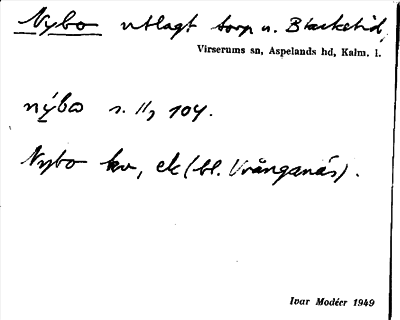 Nybo utlagt torp u. Blaeketid,
Virserums sn, Aspelands hd, Kalm. l.
nýbo s. II, 104.
Nybo kv, ek (bl. Vrånganäs).
Ivar Modéer 1949